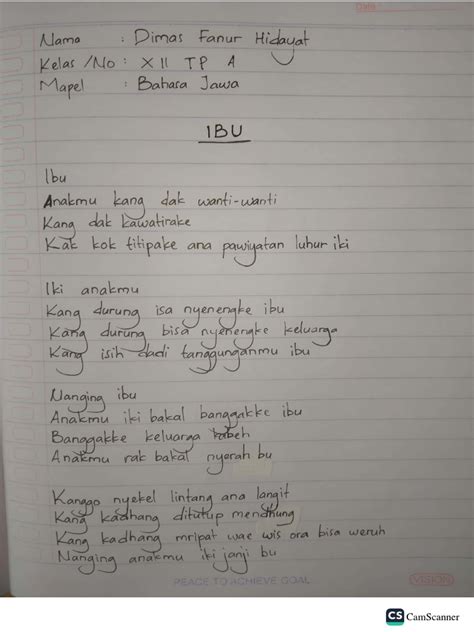 Date :
Nama : Dimas Fanur Hidayat
Kelas /No : XII TP A
Mapel : Bahasa Jawa
IBU
Ibu
Anakmu kang dak wanti-wanti
Kang dak kawatirake
Kak kok titipake ana pawiyatan luhur iki
Iki anakmu
Kang durung isa nyenengke ibu
Kang durung bisa nyenengke keluarga
Kang isih dadi tanggunganmu ibu
Nanging ibu
Anakmu iki bakal banggakke ibu
Banggakke keluarga kabeh
Anakmu rak bakal nyerah bu
Kanggo nyekel lintang ana langit
Kang kadhang ditutup mendhung
Kang kadhang mripat wae wis ora bisa weruh
Nanging anakmu iki janji bu
PEACE TO ACHIEVE GOAL
VISION
CS CamScanner